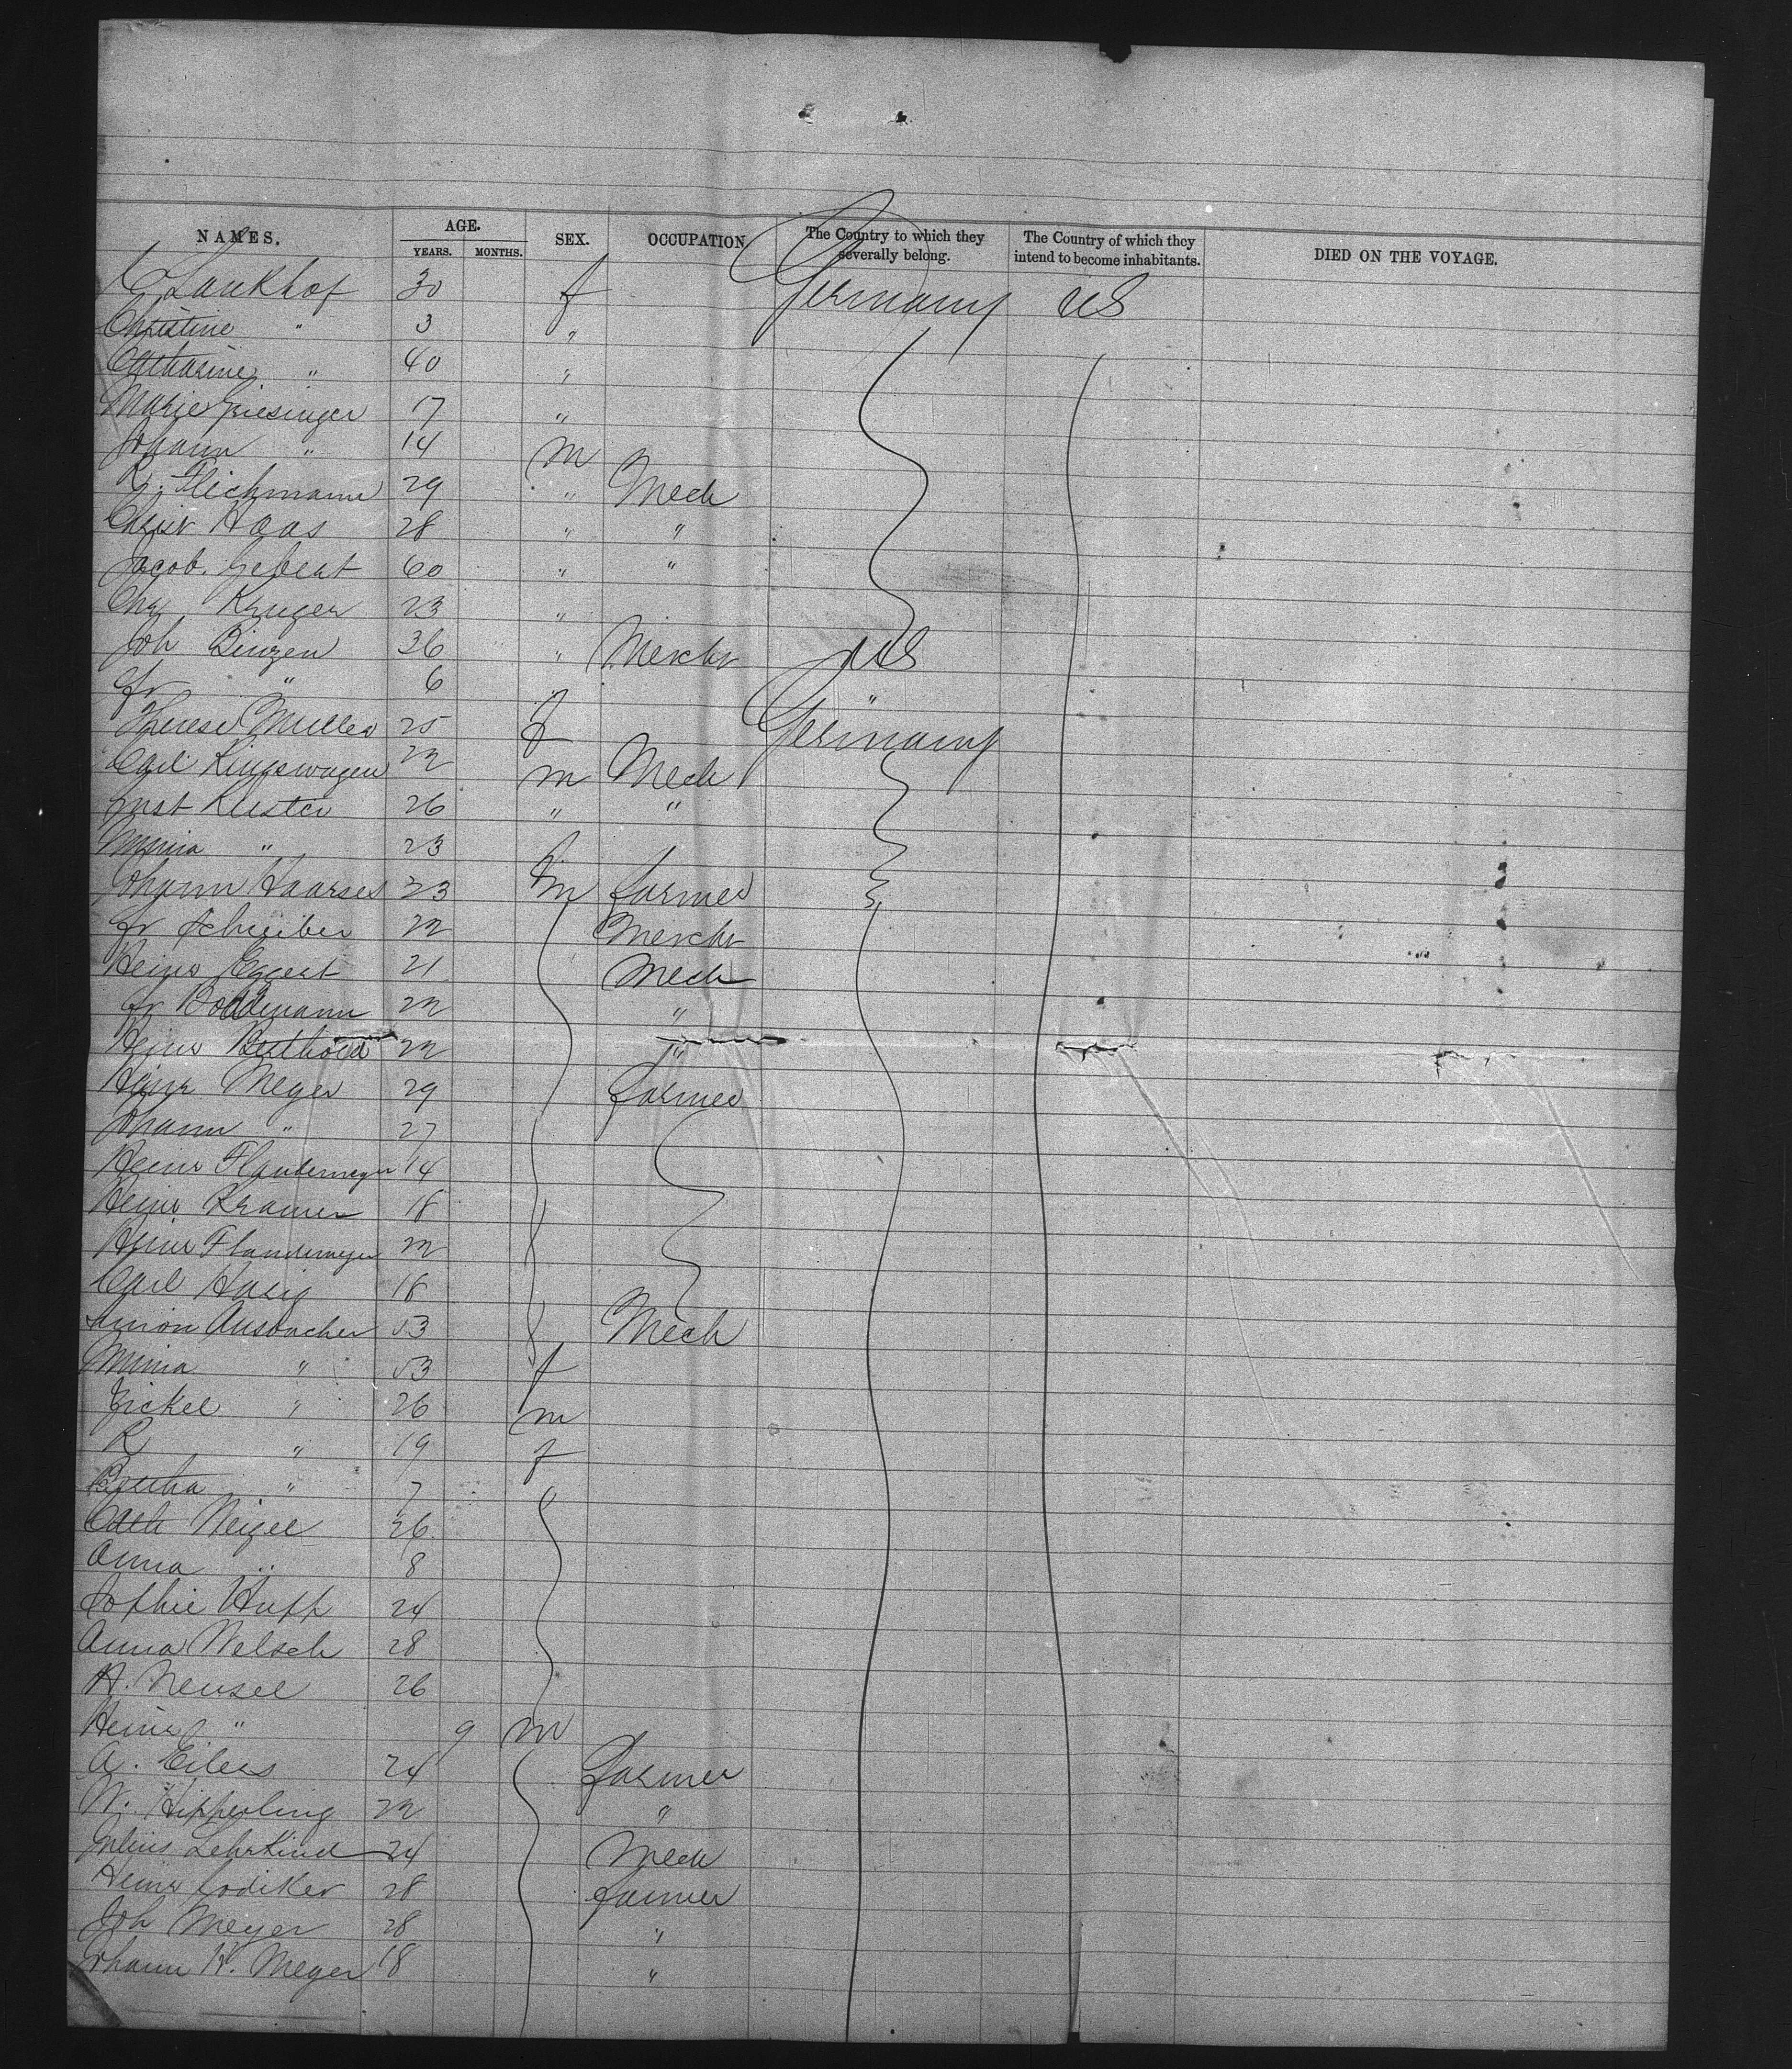 NAMES. AGE. SEX. OCCUPATION The Country to which they severally belong. The Country of which they intend to become inhabitants. DIED ON THE VOYAGE.
YEARS. MONTHS.
C Lankhof 30 f Germany US
Christine " 3 "
Catharine " 40 "
Marie Giesinger 17 "
Johann " 14 m
R. Flichmann 29 " Mech
Christ Haas 28 " "
Jacob. Gebert 60 " "
Chr Kruger 23 "
Joh Binzen 36 " Merchr US
Fr " 6 " "
Therese Muller 25 f Germany
Carl Ringswagen 22 m Mech
Just Kuster 26 " "
Minna " 23 f
Johann Haarses 23 m farmer
Fr Schreiber 22 Merchr
Heinr Eggert 21 Mech
Fr Boddmann 22 "
Heinr Berthold 22 "
Heinr Meyer 29 farmer
Johann " 27
Heinr Flandermeyer 14
Heinr Kramer 18
Heinr Flandermeyer 22
Carl Hasig 18
Simon Ausbacher 53 Mech
Minna " 53 f
Fickel " 26 m
R " 19 f
Bertha " 7
Cath Neigel 26
Anna " 8
Sophie Hupp 24
Anna Welsch 28
A. Neusel 26
Heinr " 9 m
A. Eilers 24 farmer
W. Hipperling 22 "
Julius Lehrkind 24 Mech
Heinr Lodiker 28 farmer
Joh Meyer 28 "
Johann H. Meyer 18 "